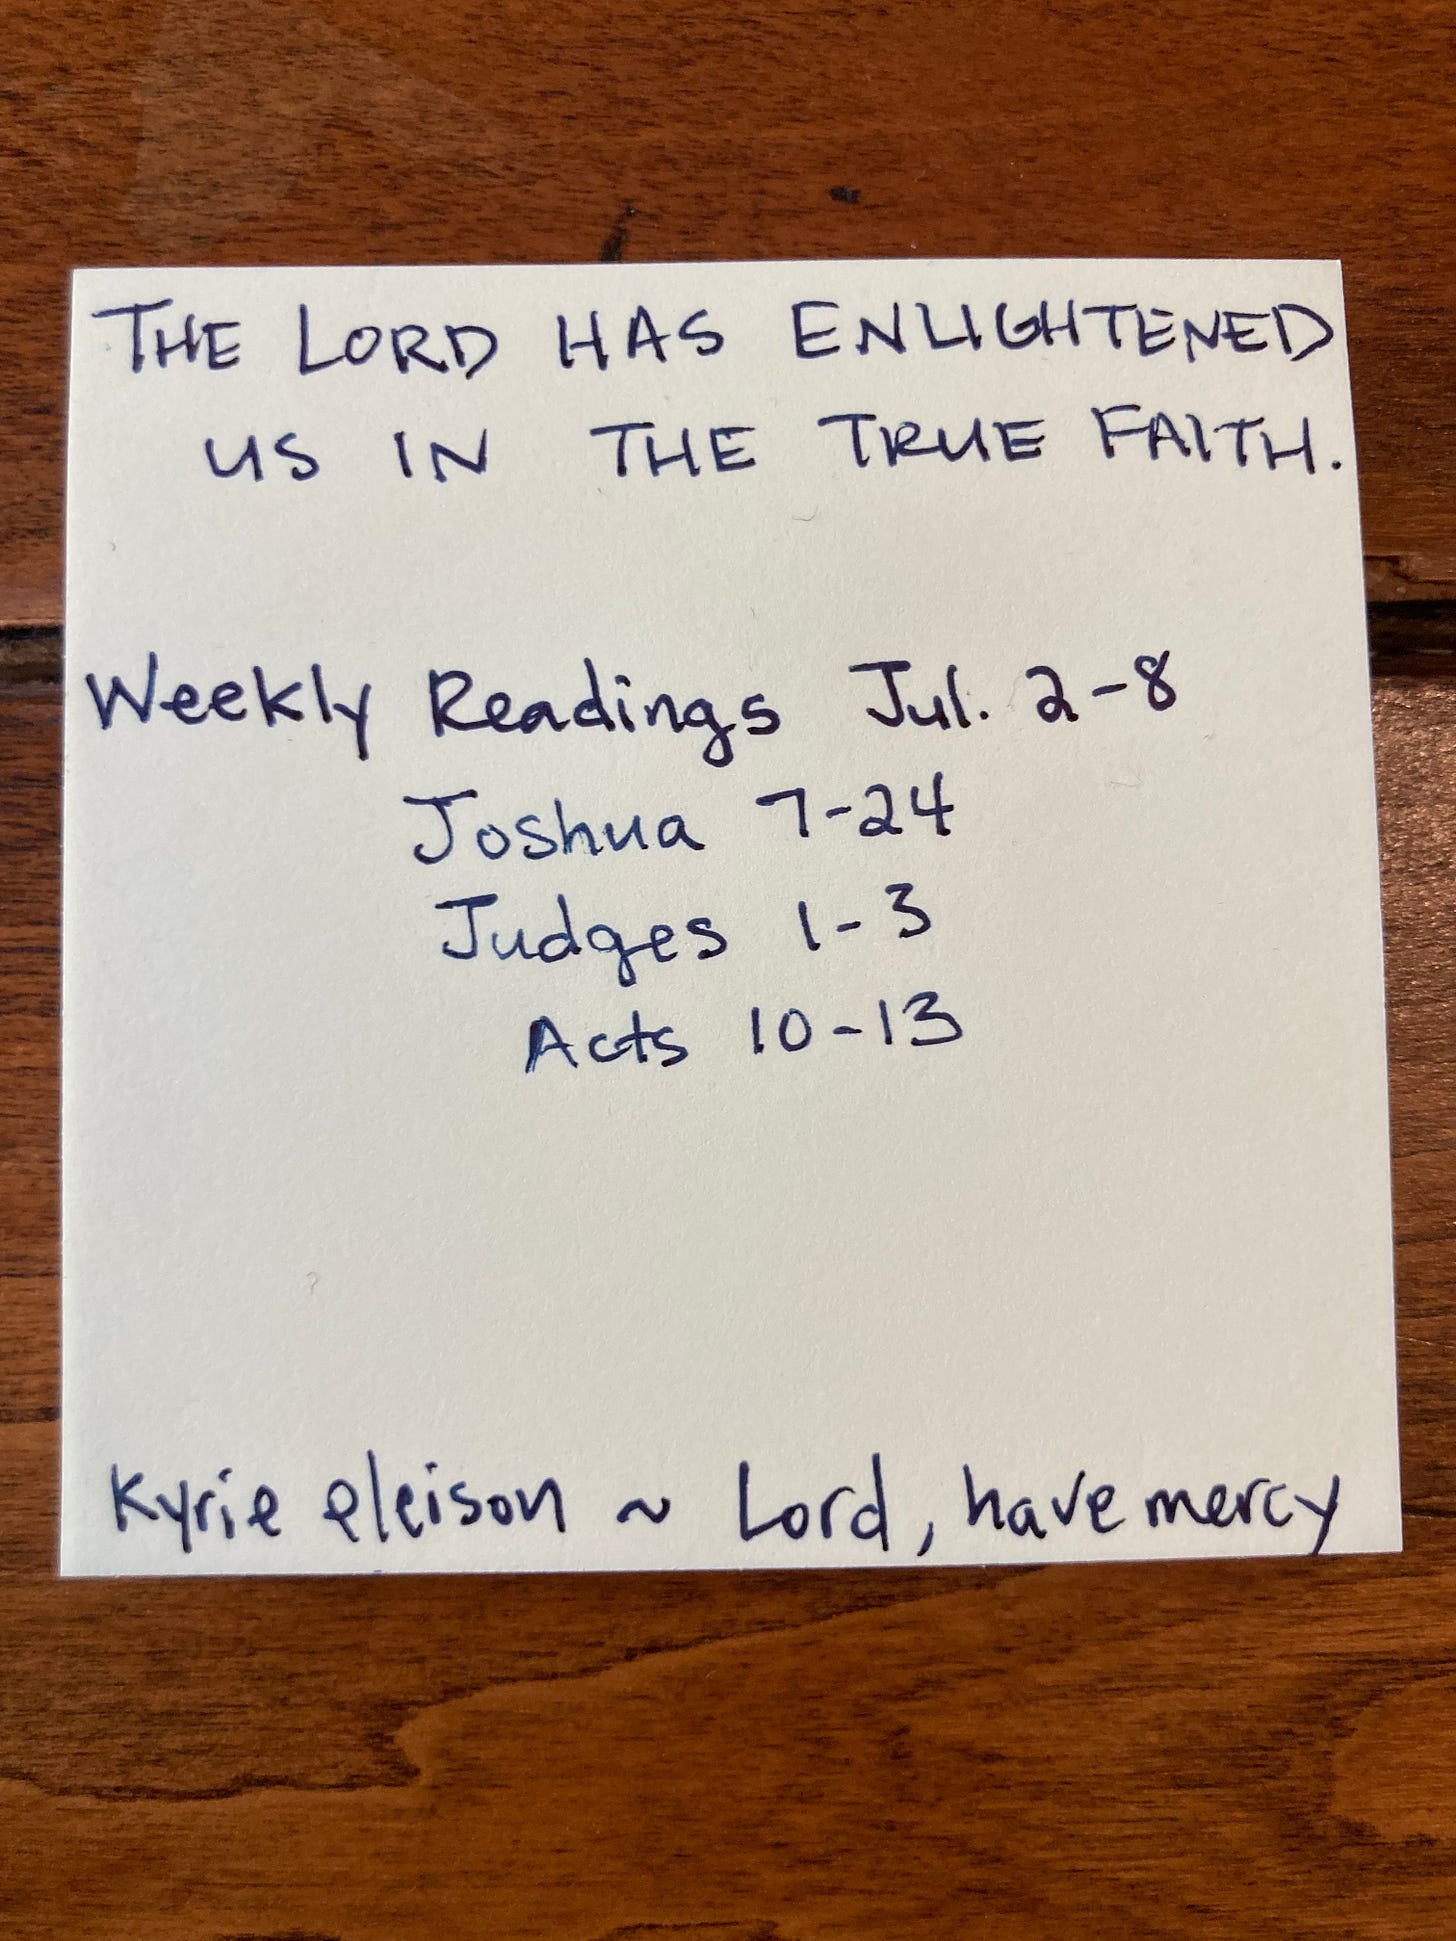 THE LORD HAS ENLIGHTENED
US IN THE TRUE FAITH.
Weekly Readings Jul. 2-8
Joshua 7-24
Judges 1-3
Acts 10-13
Kyrie eleison ~ Lord, have mercy